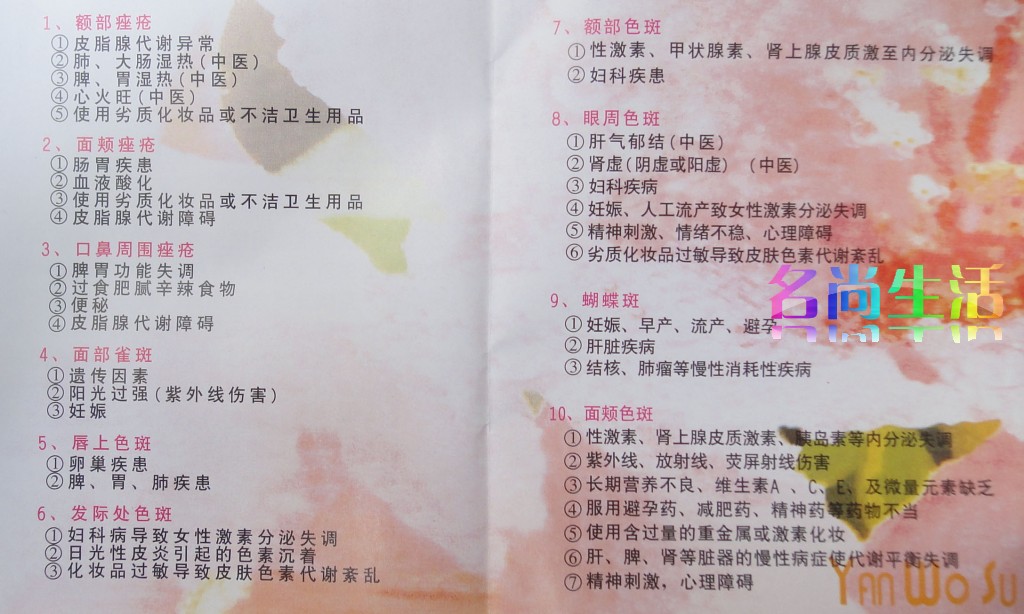 1、额部痤疮
①皮脂腺代谢异常
②肺、大肠湿热(中医)
③脾、胃湿热(中医)
④心火旺(中医)
⑤使用劣质化妆品或不洁卫生用品
2、面颊痤疮
①肠胃疾患
②血液酸化
③使用劣质化妆品或不洁卫生用品
④皮脂腺代谢障碍
3、口鼻周围痤疮
①脾胃功能失调
②过食肥腻辛辣食物
③便秘
④皮脂腺代谢障碍
4、面部雀斑
①遗传因素
②阳光过强(紫外线伤害)
③妊娠
5、唇上色斑
①卵巢疾患
②脾、胃、肺疾患
6、发际处色斑
①妇科病导致女性激素分泌失调
②日光性皮炎引起的色素沉着
③化妆品过敏导致皮肤色素代谢紊乱
7、额部色斑
①性激素、甲状腺素、肾上腺皮质激至内分泌失调
②妇科疾患
8、眼周色斑
①肝气郁结(中医)
②肾虚(阴虚或阳虚) (中医)
③妇科疾病
④妊娠、人工流产致女性激素分泌失调
⑤精神刺激、情绪不稳、心理障碍
⑥劣质化妆品过敏导致皮肤色素代谢紊乱
名尚生活
9、蝴蝶斑
①妊娠、早产、流产、避孕
②肝脏疾病
③结核、肺瘤等慢性消耗性疾病
10、面颊色斑
①性激素、肾上腺皮质激素、胰岛素等内分泌失调
②紫外线、放射线、荧屏射线伤害
③长期营养不良、维生素A、C、E、及微量元素缺乏
④服用避孕药、减肥药、精神药等药物不当
⑤使用含过量的重金属或激素化妆
⑥肝、脾、肾等脏器的慢性病症使代谢平衡失调
⑦精神刺激，心理障碍
YAN WO SU